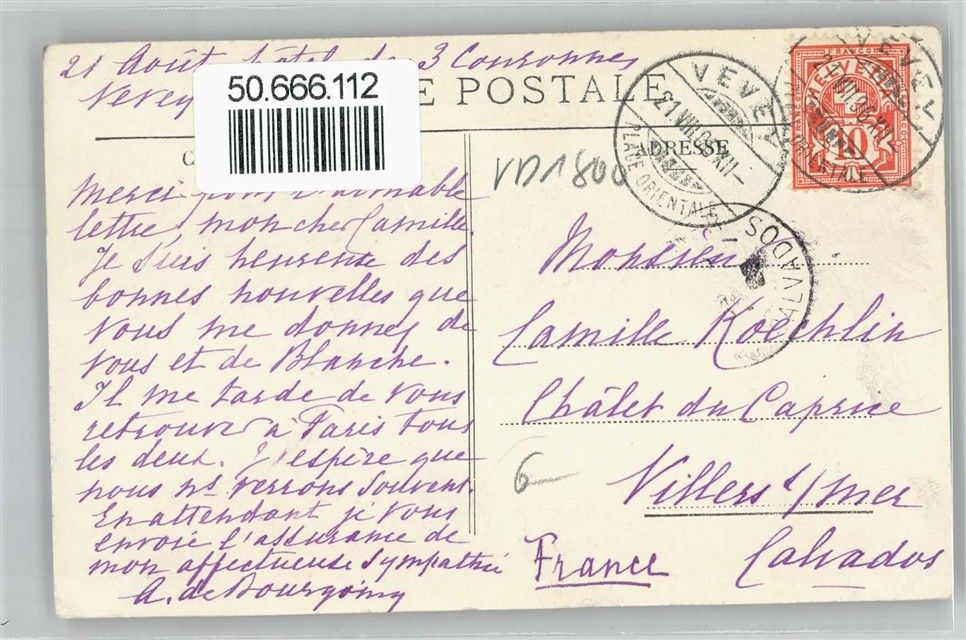 21 Août hôtel des 3 Couronnes
Vevey
50.666.112
E POSTALE
ADRESSE
C
VD1800
VEVEY
21 VIII 06 XII
PLACE ORIENTALE
FRANCO
HELVETIA
10
VEVEY
CALVADOS
Merci pour l'aimable
lettre, mon cher Camille.
Je suis heureuse des
bonnes nouvelles que
vous me donnez de
vous et de Blanche.
Il me tarde de vous
retrouver à Paris tous
les deux. J'espère que
nous ns verrons souvent.
En attendant je vous
envoie l'assurance de
mon affectueuse sympathie
A. de Bourgoing
Monsieur
Camille Koechlin
Châlet du Caprice
Villers s/mer
Calvados
France
6